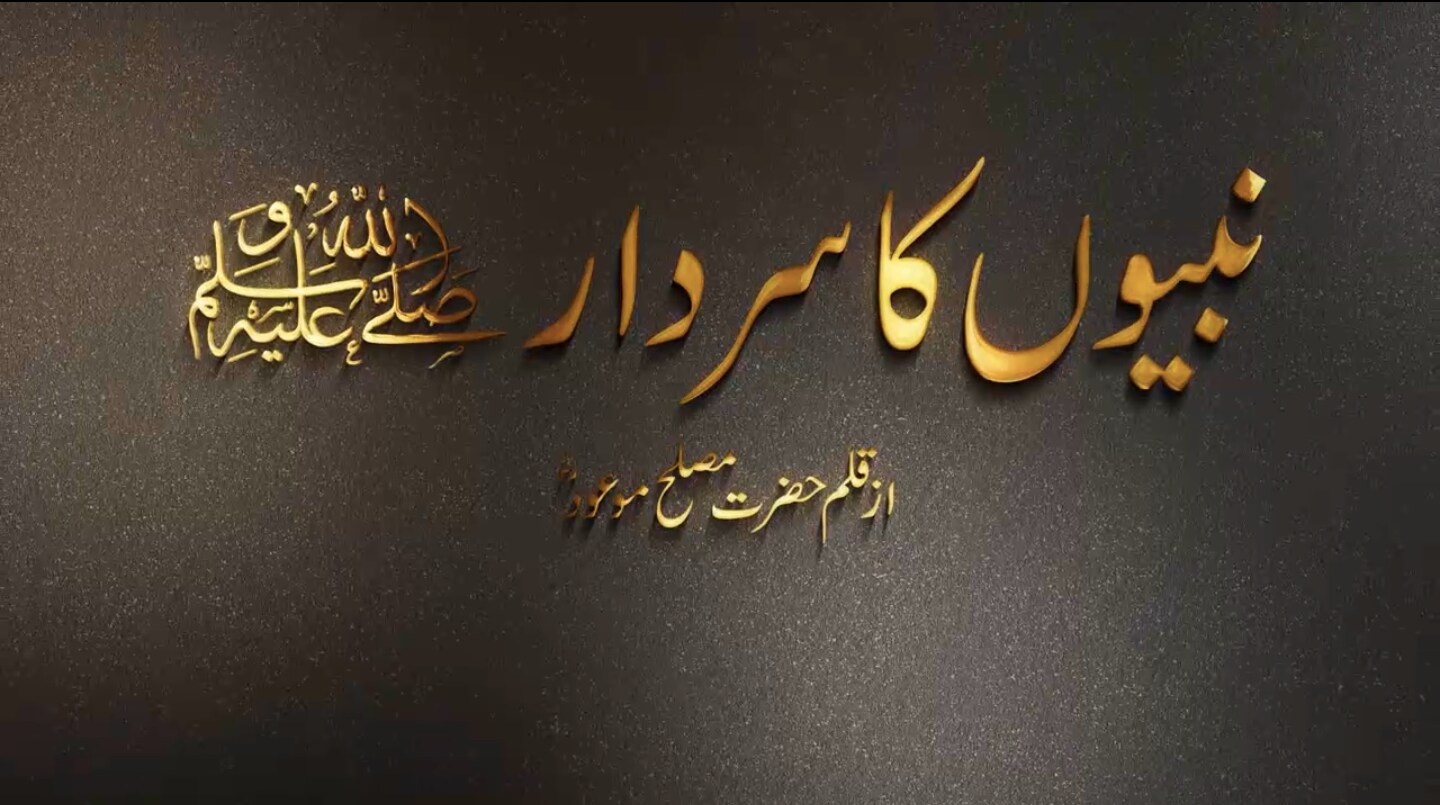 نبیوں کا سردار صَلَّی اللّٰهُ عَلَیْهِ وَسَلَّم
از قلم حضرت مصلح موعودؓ